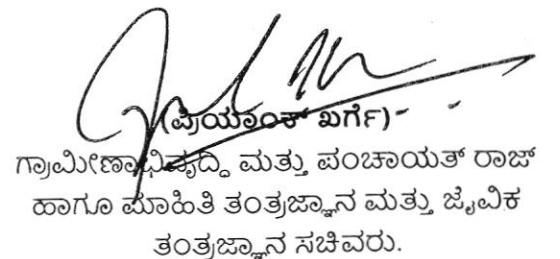 (ಪ್ರಿಯಾಂಕ್ ಖರ್ಗೆ)
ಗ್ರಾಮೀಣಾಭಿವೃದ್ಧಿ ಮತ್ತು ಪಂಚಾಯತ್ ರಾಜ್
ಹಾಗೂ ಮಾಹಿತಿ ತಂತ್ರಜ್ಞಾನ ಮತ್ತು ಜೈವಿಕ
ತಂತ್ರಜ್ಞಾನ ಸಚಿವರು.